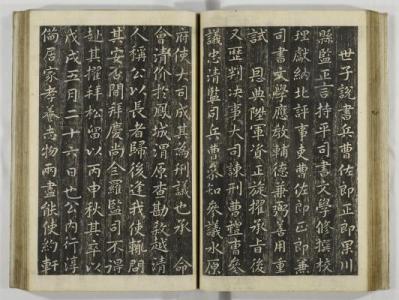 世子說書兵曹佐郎正郎果川
縣監正言持平司書文學修撰校
理獻納北評事吏曹佐郎正郎兼
司書文學應教輔德兼弼善用重
試 恩典陞軍資正旋擢承旨後
又歷判決事大司諫刑曹禮曹參
議忠清監司兵曹參知參議水原
府使大司成其為刑議也承 命
會清价於鳳城渭原查勘敕越清
人稱公以長者歸後逢我使輒問
其安否關拜慶尚全羅監司不得
赴其擢拜松留以丙申秋其卒以
戊戌五月二十六日也公內行淳
備居家孝友志物兩盡能使約軒